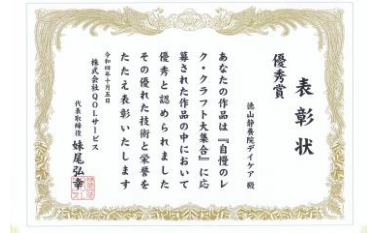 表彰状
優秀賞
徳山静養院デイケア 殿
あなたの作品は『自慢のレ
ク・クラフト大集合』に応
募された作品の中において
優秀と認められました
その優れた技術と栄誉を
たたえ表彰いたします
令和四年十月五日
株式会社QOLサービス
代表取締役 妹尾弘幸